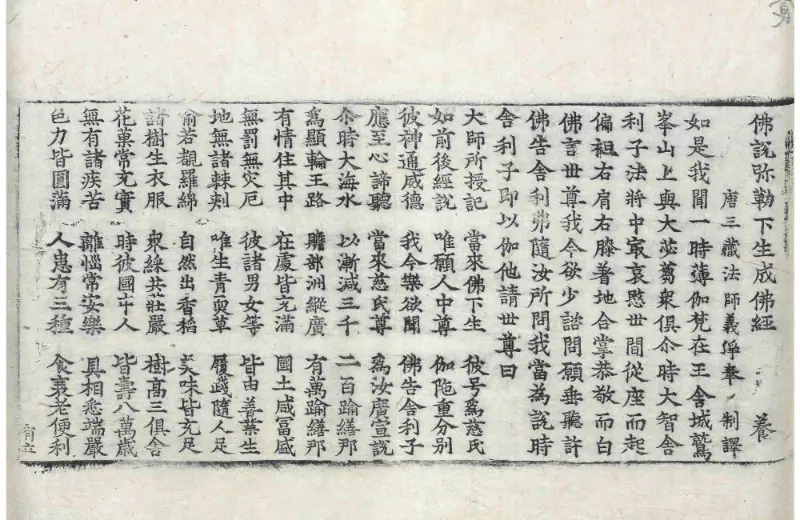 佛說弥勒下生成佛經 養
唐三藏法師義淨奉 制譯
如是我聞一時薄伽梵在王舍城鷲
峯山上與大苾蒭衆俱尒時大智舍
利子法將中㝡哀愍世間從座而起
偏袒右肩右膝著地合掌恭敬而白
佛言世尊我今欲少諮問願垂聽許
佛告舍利弗隨汝所問我當為說時
舍利子即以伽他請世尊曰
大師所授記 當來佛下生 彼号為慈氏
如前後經說 唯願人中尊 伽陁重分別
彼神通威德 我今樂欲聞 佛告舍利子
應至心諦聽 當來慈氏尊 為汝廣宣說
尒時大海水 以漸減三千 二百踰繕那
為顯輪王路 贍部洲縱廣 有萬踰繕那
有情住其中 在處皆充滿 國土咸冨盛
無罰無灾厄 彼諸男女等 皆由善業生
地無諸棘刺 唯生青耎草 履踐隨人足
喻若覩羅綿 自然出香稻 美味皆充足
諸樹生衣服 衆綵共莊嚴 樹高三俱舍
花菓常充實 時彼國中人 皆壽八萬歲
無有諸疾苦 離惱常安樂 具相悉端嚴
色力皆圓滿 人患有三種 食衰老便利